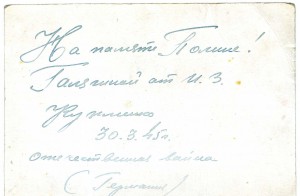 На память Полине!
Галягиной от И. З.
Кузменко
30.3.45г.
отечественная война
(Германия)